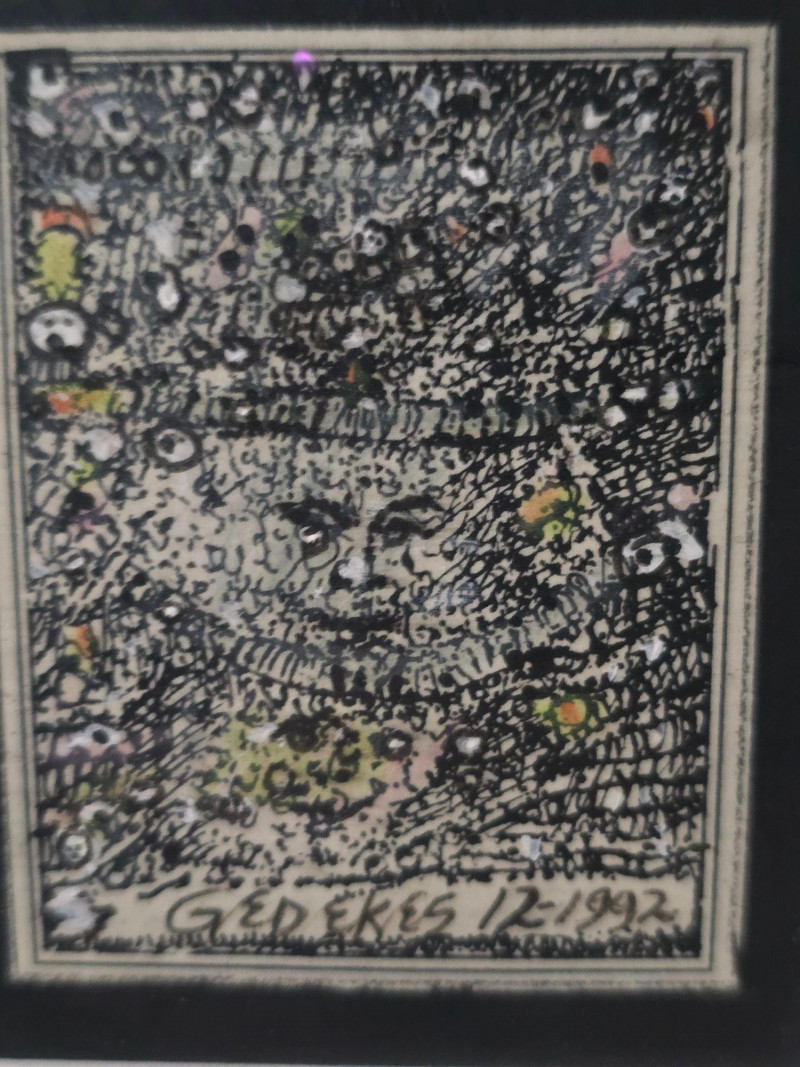 GEDEKES 12-1992